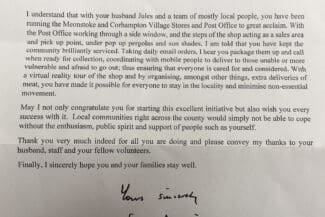 I understand that with your husband Jules and a team of mostly local people, you have been
running the Meonstoke and Corhampton Village Stores and Post Office to great acclaim. With
the Post Office working through a side window, and the steps of the shop acting as a sales area
and pick up point, under pop up pergolas and sun shades. I am told that you have kept the
community brilliantly serviced. Taking daily email orders, I hear you package them up and call
when ready for collection, coordinating with mobile people to deliver to those unable or more
vulnerable and afraid to go out; thus ensuring that everyone is cared for and considered. With
a virtual reality tour of the shop and by organising, amongst other things, extra deliveries of
meat, you have made it possible for everyone to stay in the locality and minimise non-essential
movement.
May I not only congratulate you for starting this excellent initiative but also wish you every
success with it. Local communities right across the county would simply not be able to cope
without the enthusiasm, public spirit and support of people such as yourself.
Thank you very much indeed for all you are doing and please convey my thanks to your
husband, staff and your fellow volunteers.
Finally, I sincerely hope you and your families stay well.
Yours sincerely